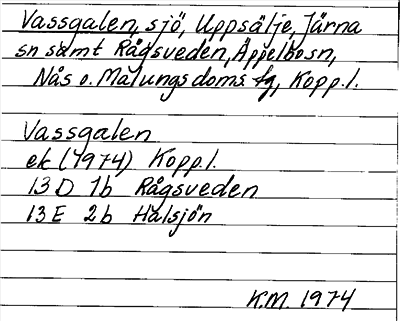 Vassgalen, sjö, Uppsälje, Järna
sn samt Rågsveden, Äppelbosn,
Nås o. Malungs doms fg, Kopp.l.
Vassgalen
ek (1974) Kopp.l.
13 D 7b Rågsveden
13 E 2b Halsjön
K.M. 1974